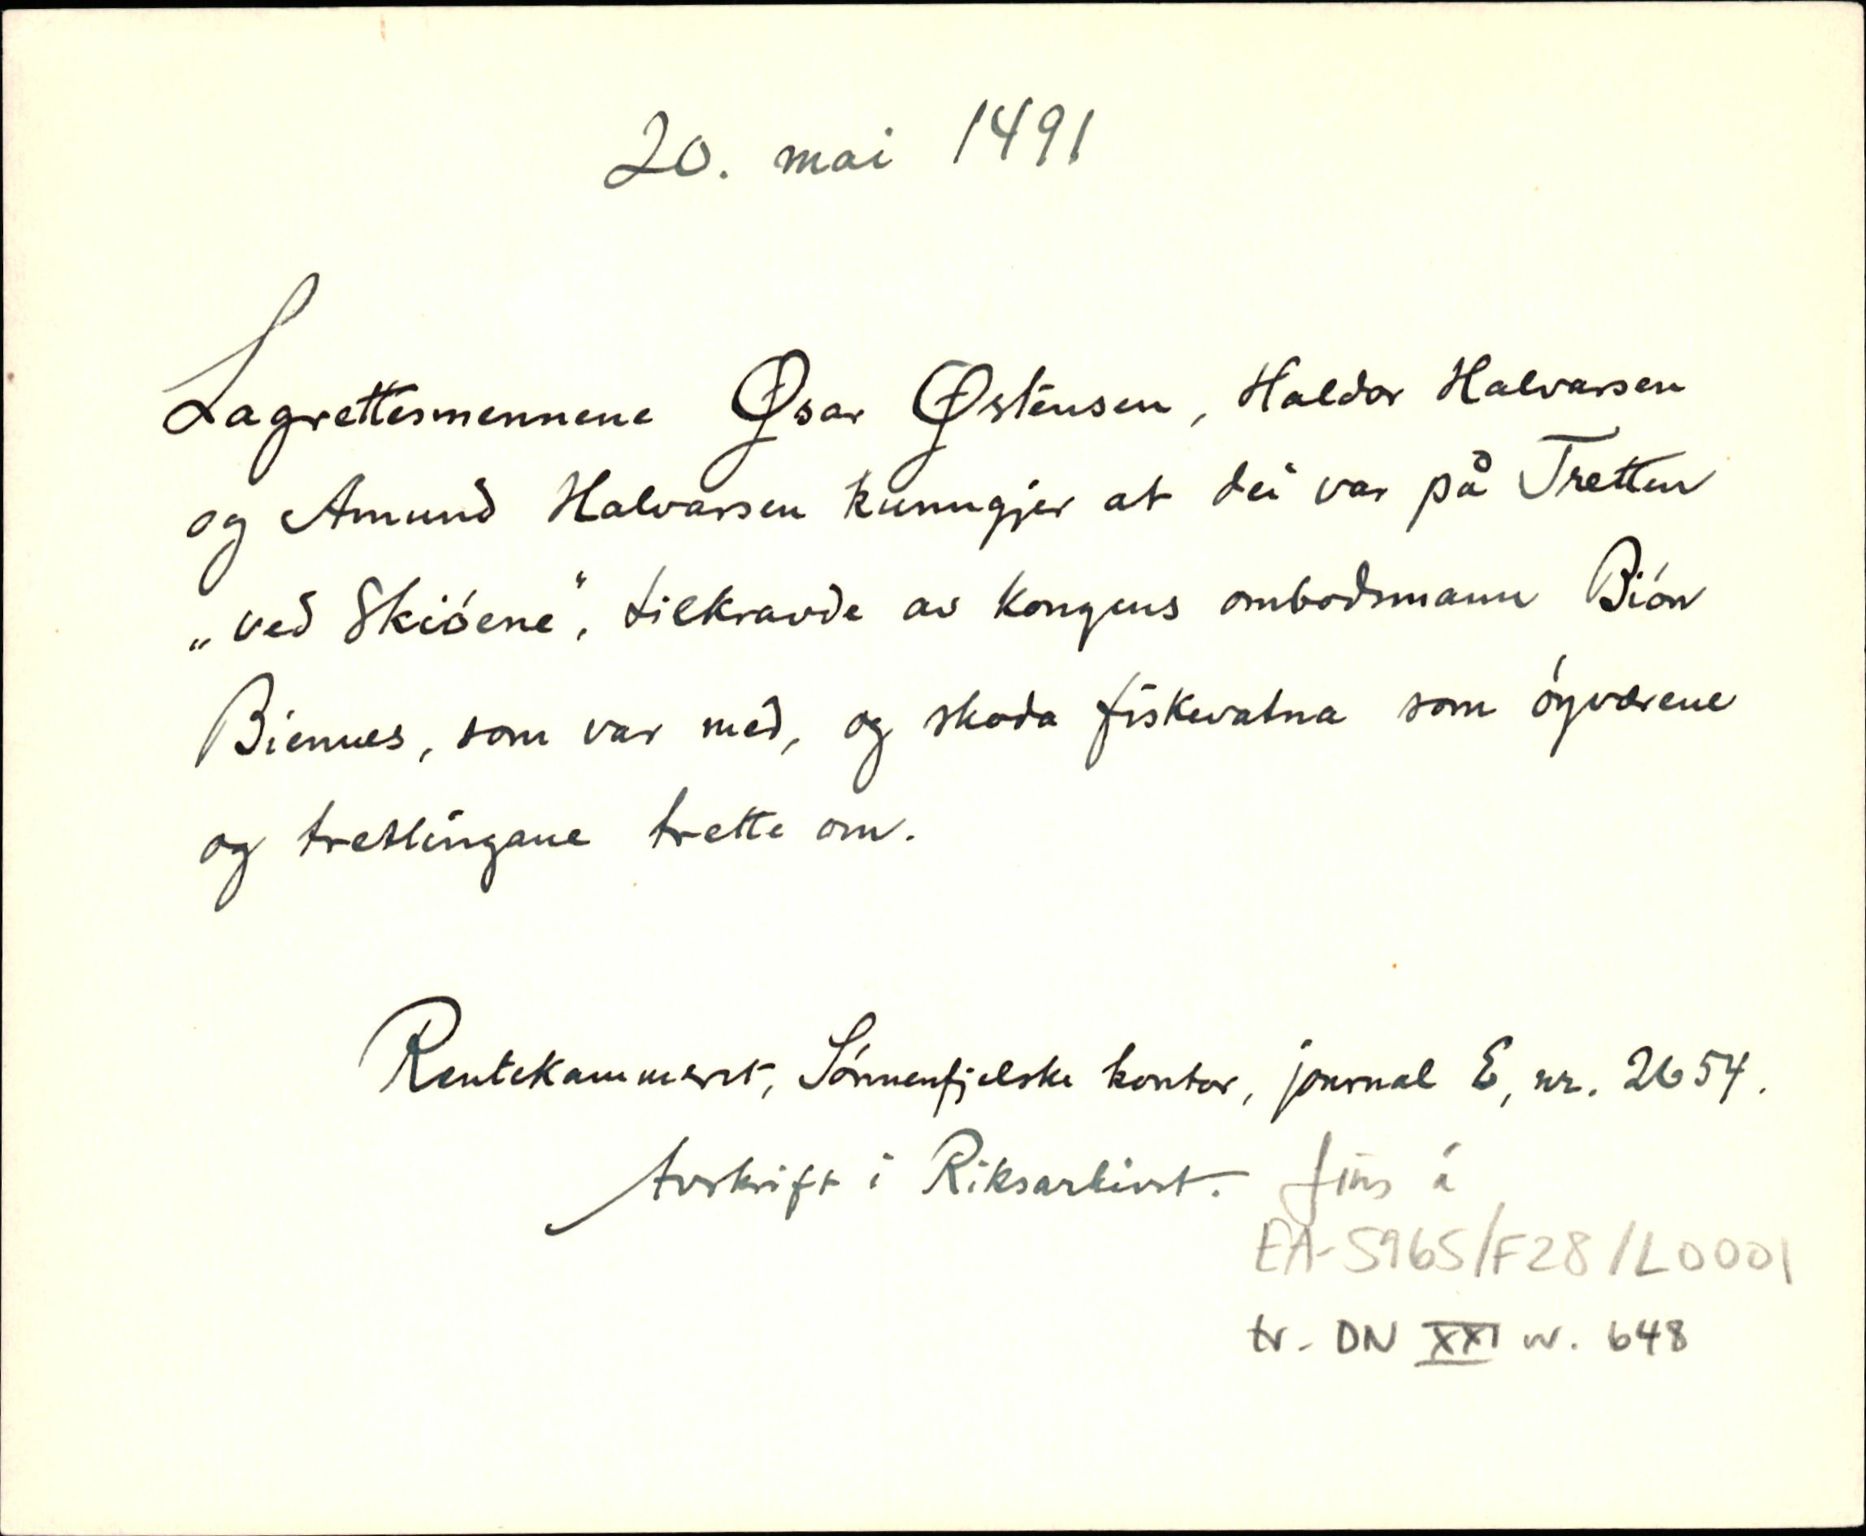 20. mai 1491
Lagrettesmennene Øsar Østensen, Haldor Halvarsen
og Amund Halvarsen kunngjer at dei var på Tretten
„ved Skióene“, tilkravde av kongens ombodsmann Bión
Biennes, som var med, og skoda fiskevatna som óyværene
og tretlingane trette om.
Rentekammeret, Sónnenfjelske kontor, journal E, nr. 2654.
Avskrift i Riksarkivet. fins i
EA-5965/F28/L0001
tr. DN XXI nr. 648